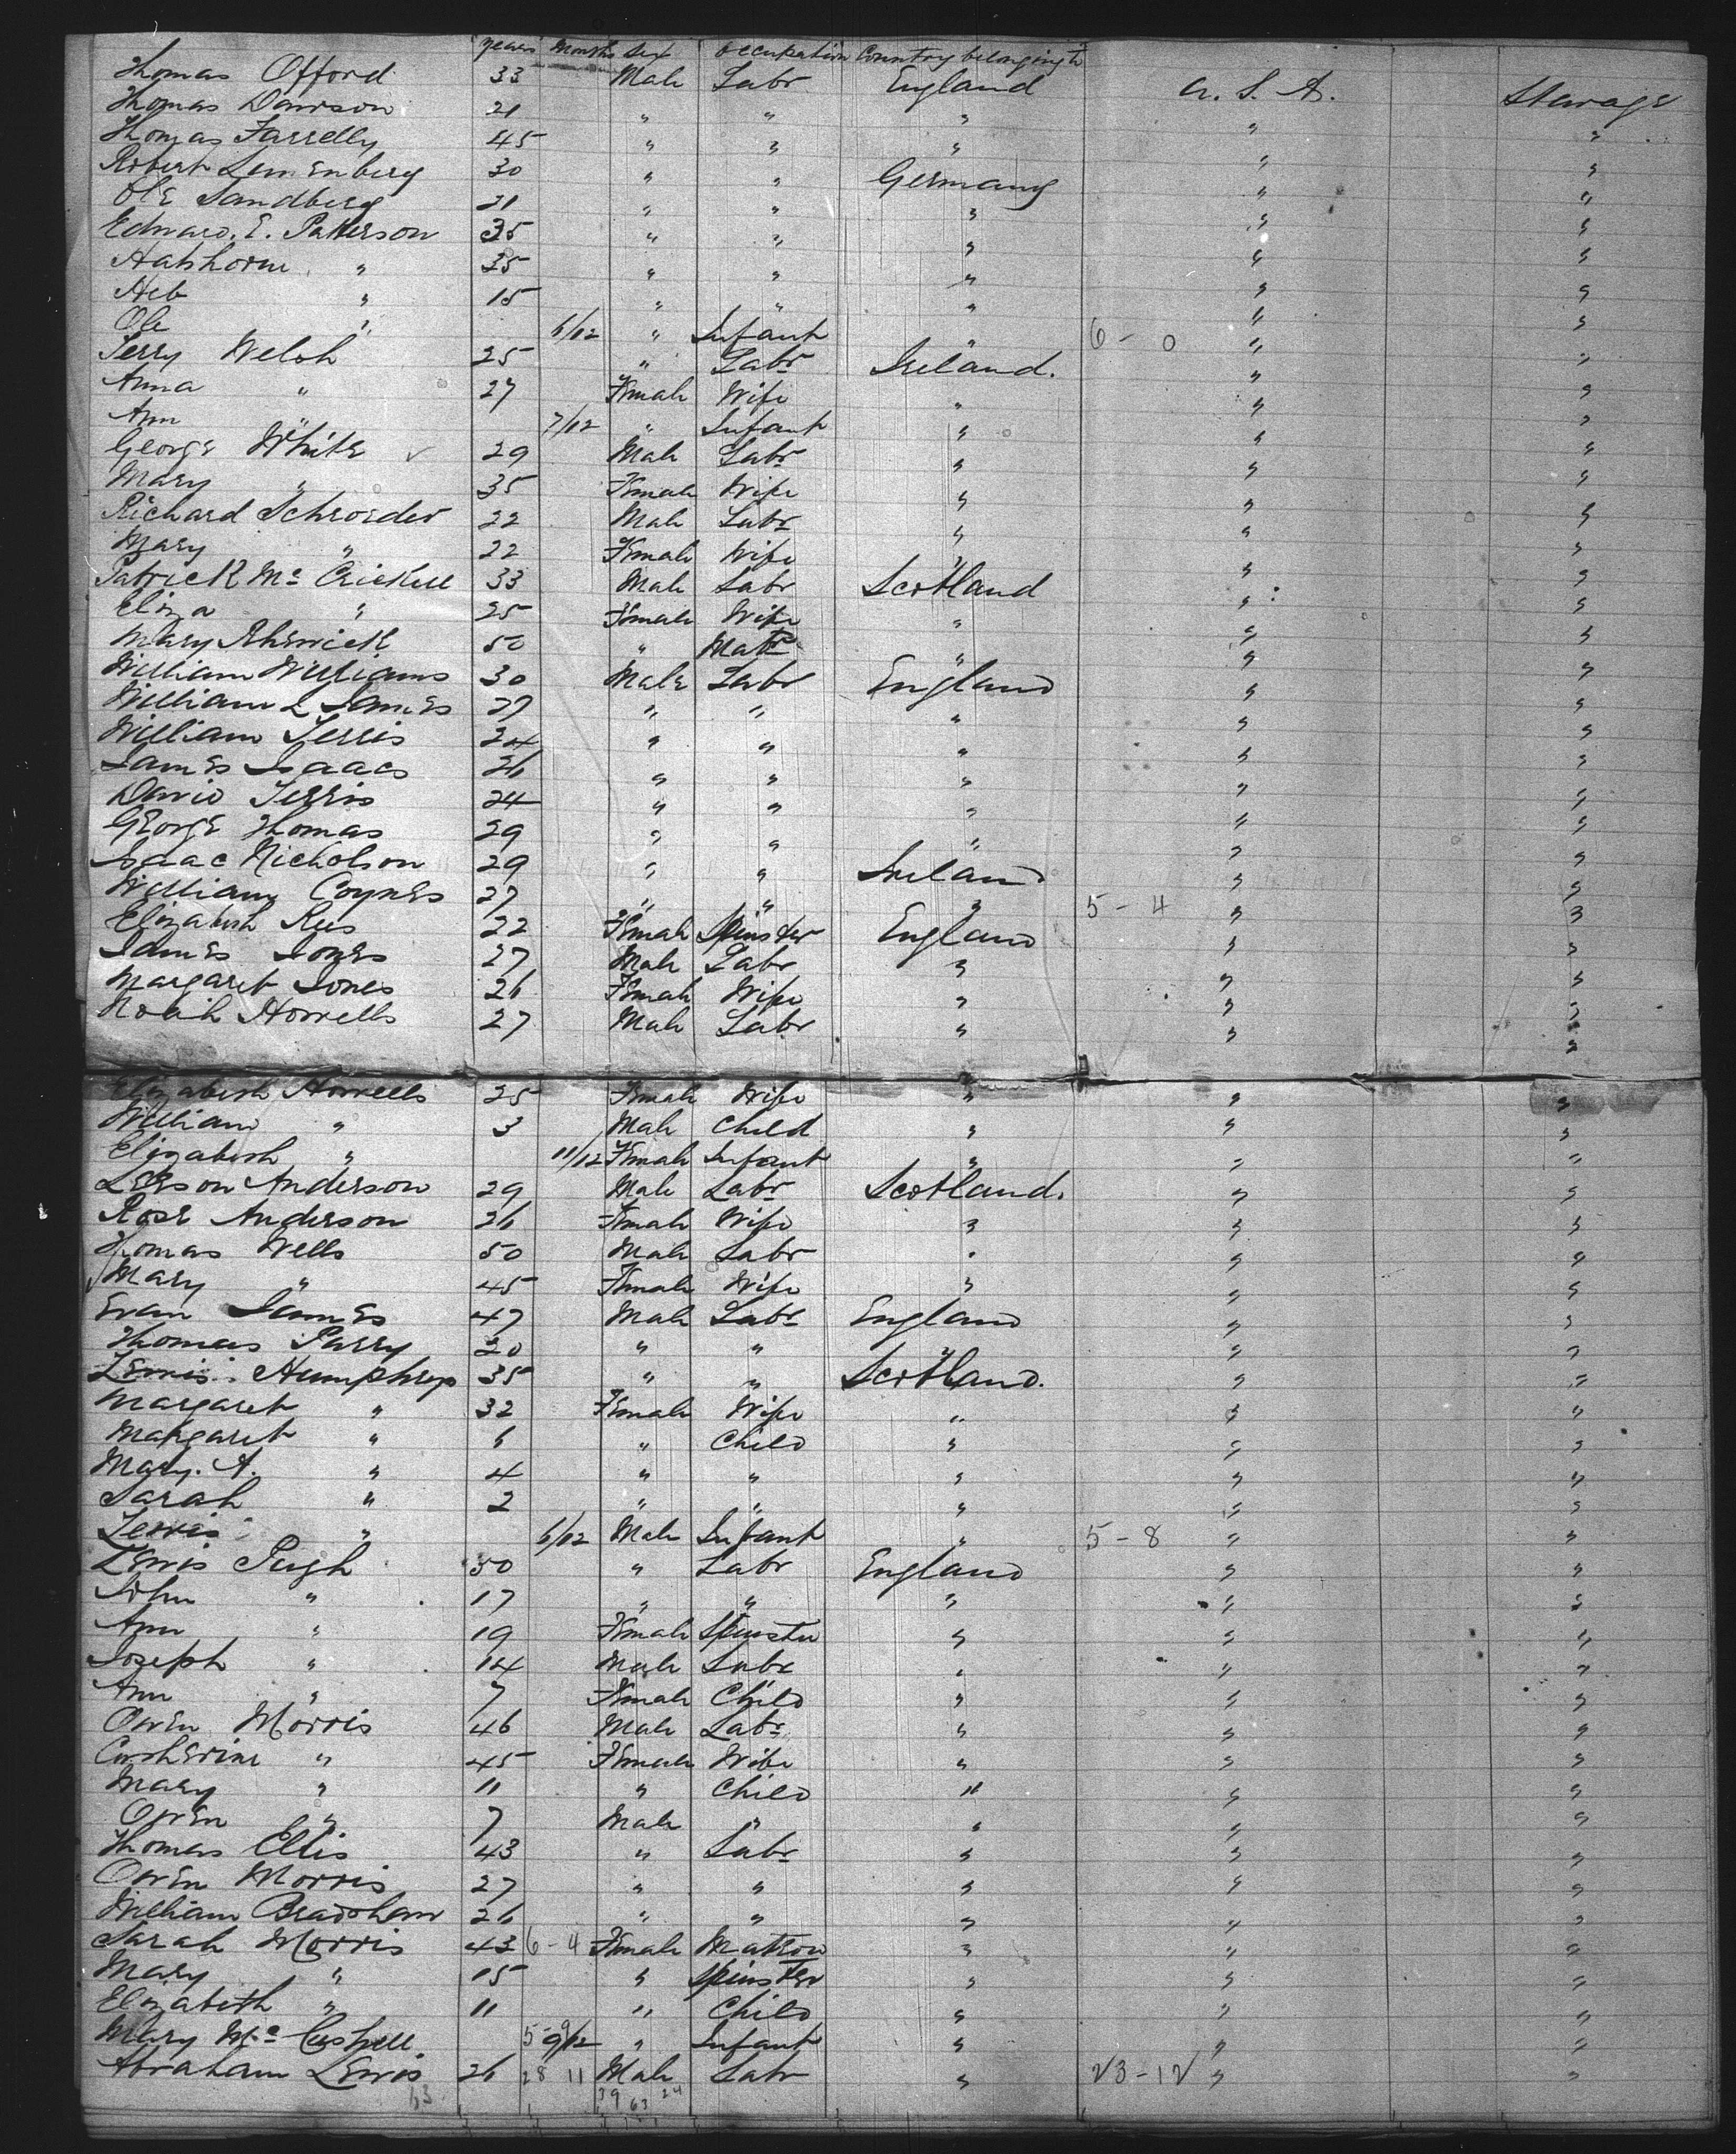 years Months Sex Occupation Country belonging to
Thomas Offord 33 Male Labr England U. S. A. Steerage
Thomas Dawson 21 " " " " "
Thomas Farrelly 45 " " " " "
Robert 30 " " Germany " "
Ole Sandberg 21 " " " " "
Edward. E. Patterson 35 " " " " "
" 25 " " " " "
" 15 " " " " "
Ole " 6/12 " Infant " 6 - 0 " "
Jerry Welsh 25 " Labr Ireland. " "
Anna " 27 Female Wife " " "
Ann " 7/12 " Infant " " "
George White 29 Male Labr " " "
Mary " 35 Female Wife " " "
Richard Schroeder 22 Male Labr " " "
Mary " 22 Female Wife " " "
Patrick Mc 33 Male Labr Scotland " "
Eliza " 25 Female Wife " " "
Mary 50 " Matn " " "
William Williams 30 Male Labr England " "
William L James 27 " " " " "
William Jerris 24 " " " " "
James Isaacs 26 " " " " "
David Jerris 24 " " " " "
George Thomas 29 " " " " "
Isaac Nicholson 29 " " Ireland " "
William Coynes 27 " " " 5 - 4 " "
Elizabeth Rees 22 Female Spinster England " "
James Jones 27 Male Labr " " "
Margaret Jones 26 Female Wife " " "
Noah Howells 27 Male Labr " " "
Elizabeth Howells 25 Female Wife " " "
William " 3 Male Child " " "
Elizabeth " 11/12 Female Infant " " "
Anderson 29 Male Labr Scotland. " "
Rose Anderson 26 Female Wife " " "
Thomas Wells 50 Male Labr " " "
Mary " 45 Female Wife " " "
Evan James 47 Male Labr England " "
Thomas Parry 20 " " " " "
Lewis Humphreys 35 " " Scotland. " "
Margaret " 32 Female Wife " " "
Margaret " 6 " Child " " "
Mary. A. " 4 " " " " "
Sarah " 2 " " " " "
Lewis " 6/12 Male Infant " 5 - 8 " "
Lewis Pugh 50 " Labr England " "
John " 17 " " " " "
Ann " 19 Female Spinster " " "
Joseph " 14 Male Labr " " "
Ann " 7 Female Child " " "
Owen Morris 46 Male Labr " " "
Catherine " 45 Female Wife " " "
Mary " 11 " Child " " "
Owen " 7 Male " " " "
Thomas Ellis 43 " Labr " " "
Owen Morris 27 " " " " "
William Bradshaw 26 " " " " "
Sarah Morris 43 6 - 4 Female Matron " " "
Mary " 15 " Spinster " " "
Elizabeth " 11 " Child " " "
Mary Mc 5 - 9 9/12 " Infant " " "
Abraham Lewis 26 28 11 Male Labr " 23 - 12 " "
63 39 63 24